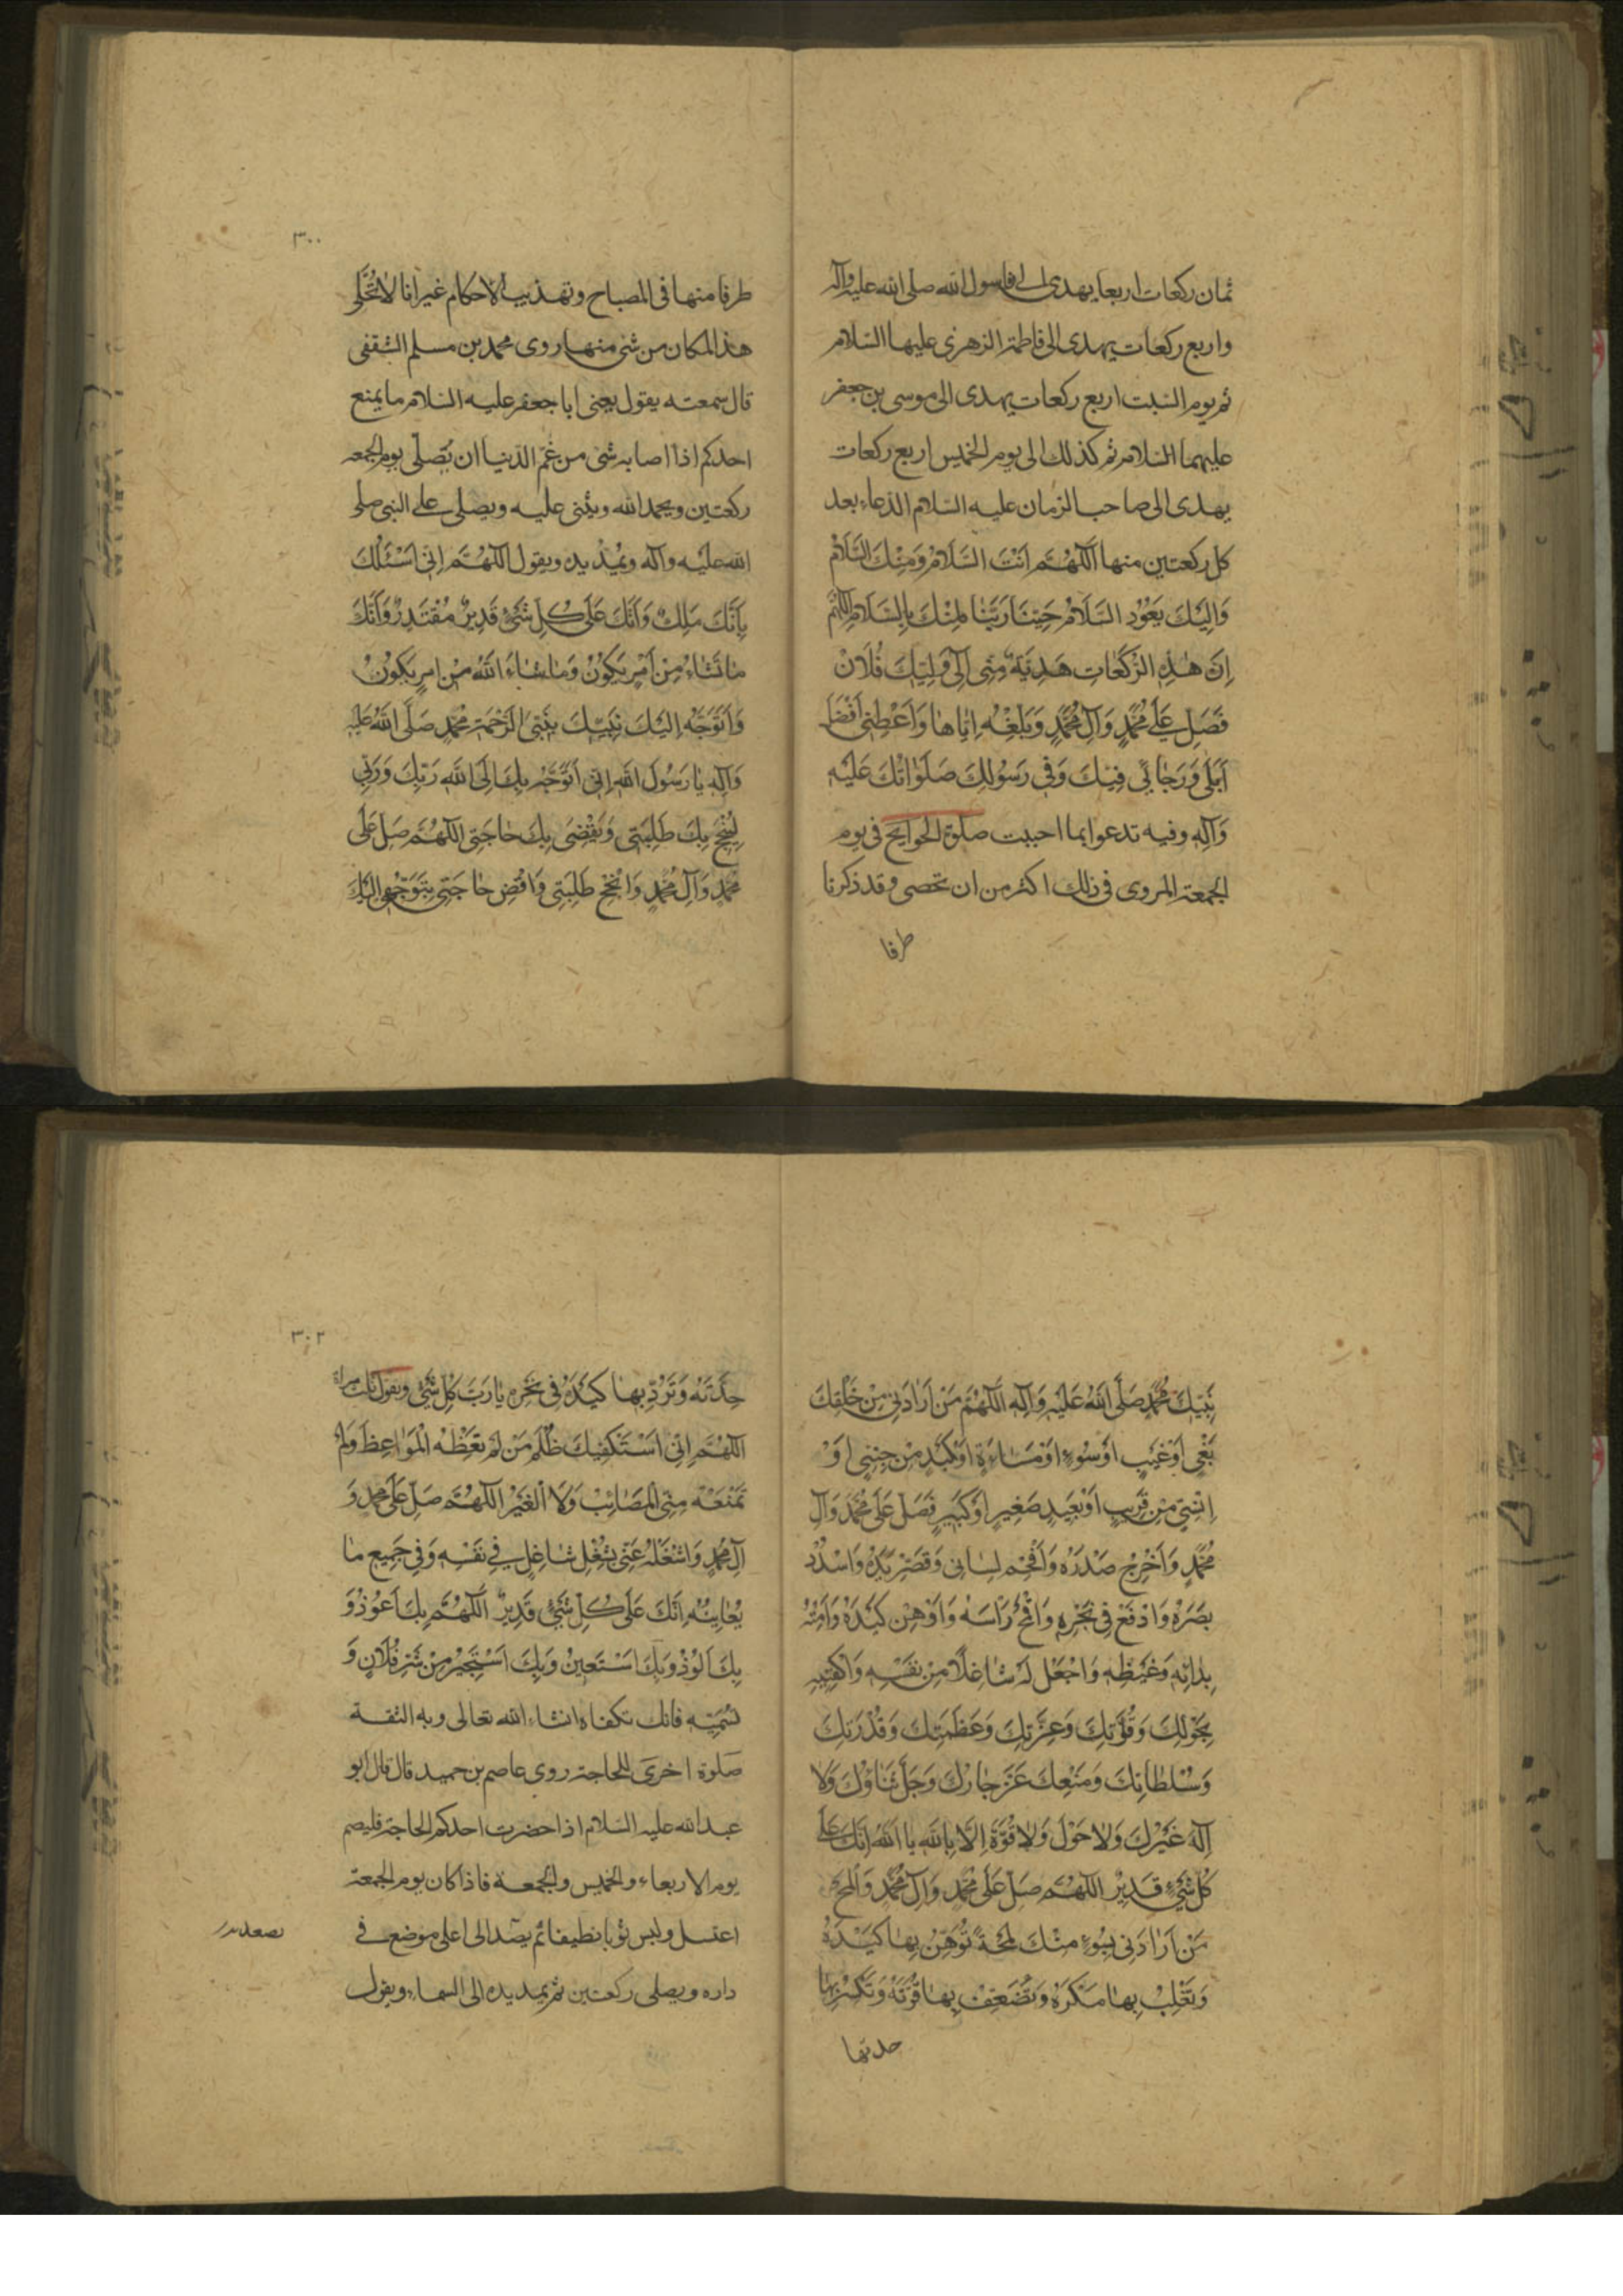 ثمان ركعات اربعا يهدى الى رسول الله صلى الله عليه وآله
واربع ركعات يهدى الى فاطمة الزهرى عليها السلام
ثم يوم السبت اربع ركعات يهدى الى موسى بن جعفر
عليهما السلام ثم كذلك الى يوم الخميس اربع ركعات
يهدى الى صاحب الزمان عليه السلام الدعاء بعد
كل ركعتين منها اَللّهُمَّ اَنْتَ السَّلامُ وَمِنْكَ السَّلامُ
وَاِلَيْكَ يَعُوْدُ السَّلامُ حَيِّنَا رَبَّنا مِنْكَ بِالسَّلامِ اللّهُمَّ
اِنَّ هذِهِ الرَّكَعاتِ هَدِيَّةٌ مِنّى اِلى وَلِيِّكَ فُلان
فَصَلِّ عَلى مُحَمَّدٍ وَآلِ مُحَمَّدٍ وَبَلِّغْهُ اِيّاها وَاَعْطِنى اَفْضَلَ
اَمَلى وَرَجائى فيكَ وَفى رَسُولِكَ صَلَواتُكَ عَلَيْهِ
وَآلِهِ وفيه تدعوا بما احببت صلوة الحوايج فى يوم
الجمعة المروى فى ذلك اكثر من ان تحصى وقد ذكرنا
طرفا
٣٠٠
طرفا منها فى المصباح وتهذيب الاحكام غير انا لا نُخَلّى
هذا المكان من شئ منها روى محمد بن مسلم الثقفى
قال سمعته يقول يعنى ابا جعفر عليه السلام ما يمنع
احدكم اذا اصابه شئ من غَمّ الدنيا ان يُصلّى يوم الجمعه
ركعتين ويحمد الله ويثنى عليه ويصلى على النبى صلى
الله عليه وآله ويمُدّ يده ويقول اللّهُمَّ اِنّى اَسْئَلُكَ
بِاَنَّكَ مَلِكٌ وَاَنَّكَ عَلى كُلِّ شَئٍ قَديرٌ مُقْتَدِرٌ وَاَنَّكَ
ما تَشاءُ مِنْ اَمْرٍ يَكُوْنُ وَما شاءَ اللهُ مِنْ امرٍ يَكُونُ
وَاَتَوَجَّهُ اِلَيْكَ نَبِيِّكَ بِنَبِىّ الرَّحْمَةِ مُحَمَّدٍ صَلَّى اللهُ عَلَيْهِ
وَآلِهِ يا رَسُولَ اللهِ اِنّى اَتَوَجَّهُ بِكَ اِلَى اللهِ رَبِّكَ وَرَبّى
لِيُنْجِحَ بِكَ طَلِبَتى وَيَقْضِىَ بِكَ حاجَتى اللّهُمَّ صَلِّ عَلى
مُحَمَّدٍ وَآلِ مُحَمَّدٍ وَاَنْجِحْ طَلِبَتى وَاقْضِ حاجَتى بِتَوَجُّهى اِلَيْكَ
نَبِيِّكَ مُحَمَّدٍ صَلَّى اللهُ عَلَيْهِ وَآلِهِ اَللّهُمَّ مَنْ اَرادَنى مِنْ خَلْقِكَ
بَغْىٍ اَوْ عَيْبٍ اَوْ سُوْءٍ اَوْ مَسائَةٍ اَوْ كَيْدٍ مِنْ جِنِّىٍ اَوْ
اِنْسِىٍّ مِنْ قَريبٍ اَوْ بَعيدٍ صَغيرٍ اَوْ كَبيرٍ فَصَلِّ عَلى مُحَمَّدٍ وَآلِ
مُحَمَّدٍ وَاَحْرِجْ صَدْرَهُ وَاَفْحِمْ لِسانى وَقَصِّرْ يَدَهُ وَاسْدُدْ
بَصَرَهُ وَادْفَعْ فى نَحْرِهِ وَاقْمَعْ رَاسَهُ وَاَوْهِنْ كَيْدَهُ وَاَمِتْهُ
بِدائِهِ وَغَيْظِهِ وَاجْعَلْ لَهُ شاغِلاً مِنْ نَفْسِهِ وَاكْفِنيهِ
بِحَوْلِكَ وَقُوَّتِكَ وَعِزَّتِكَ وَعَظَمَتِكَ وَقُدْرَتِكَ
وَسُلْطانِكَ وَمَنْعِكَ عَزَّ جارُكَ وَجَلَّ ثَناؤُكَ وَلا
اِلهَ غَيْرُكَ وَلا حَوْلَ وَلا قُوَّةَ اِلاّ بِاللهِ يا اَللهُ اِنَّكَ عَلى
كُلِّ شَئٍ قَديرٌ اللّهُمَّ صَلِّ عَلى مُحَمَّدٍ وَآلِ مُحَمَّدٍ وَالْمَحْ
مَنْ اَرادَنى بِسُوْءٍ مِنْكَ لَمْحَةً تُوْهِنُ بِها كَيْدَهُ
وَتَغْلِبُ بِها مَكْرَهُ وَتُضَعِّفُ بِها قُوَّتَهُ وَتَكْسِرُ بِها
حدتها
٣٠٢
حِدَّتَهُ وَتَرُدُّ بِها كَيْدَهُ فى نَحْرِهِ يا رَبَّ كُلِّ شَئٍ وتقول ثلث مراة
اللّهُمَّ اِنّى اَسْتَكْفيكَ ظُلْمَ مَنْ لَمْ تَعِظْهُ الْمَواعِظُ وَلَمْ
تَمْنَعْهُ مِنّى الْمَصائِبُ وَلا الْغِيَرُ اللّهُمَّ صَلِّ عَلى مُحَمَّدٍ وَ
آلِ مُحَمَّدٍ وَاشْغَلْهُ عَنّى بِشُغْلٍ شاغِلٍ فى نَفْسِهِ وَفى جَميعِ ما
يُعانيهِ اِنَّكَ عَلى كُلِّ شَئٍ قَديرٌ اَللّهُمَّ بِكَ اَعُوْذُ وَ
بِكَ اَلُوْذُ وَبِكَ اَسْتَعينُ وَبِكَ اَسْتَجيرُ مِنْ شَرِّ فُلانٍ وَ
تُسَمّيهِ فانك تكفاه انشاء الله تعالى وبه الثقة
صَلوة اخرى للحاجة روى عاصم بن حميد قال قال ابو
عبد الله عليه السلام اذا حضرت احدكم الحاجة فليصم
يوم الاربعاء والخميس والجمعة فاذا كان يوم الجمعة
اغتسل ولبس ثوبا نظيفا ثم يصّد الى اعلى موضع فى
يصعد
داره ويصلى ركعتين ثم يمد يده الى السماء ويقول